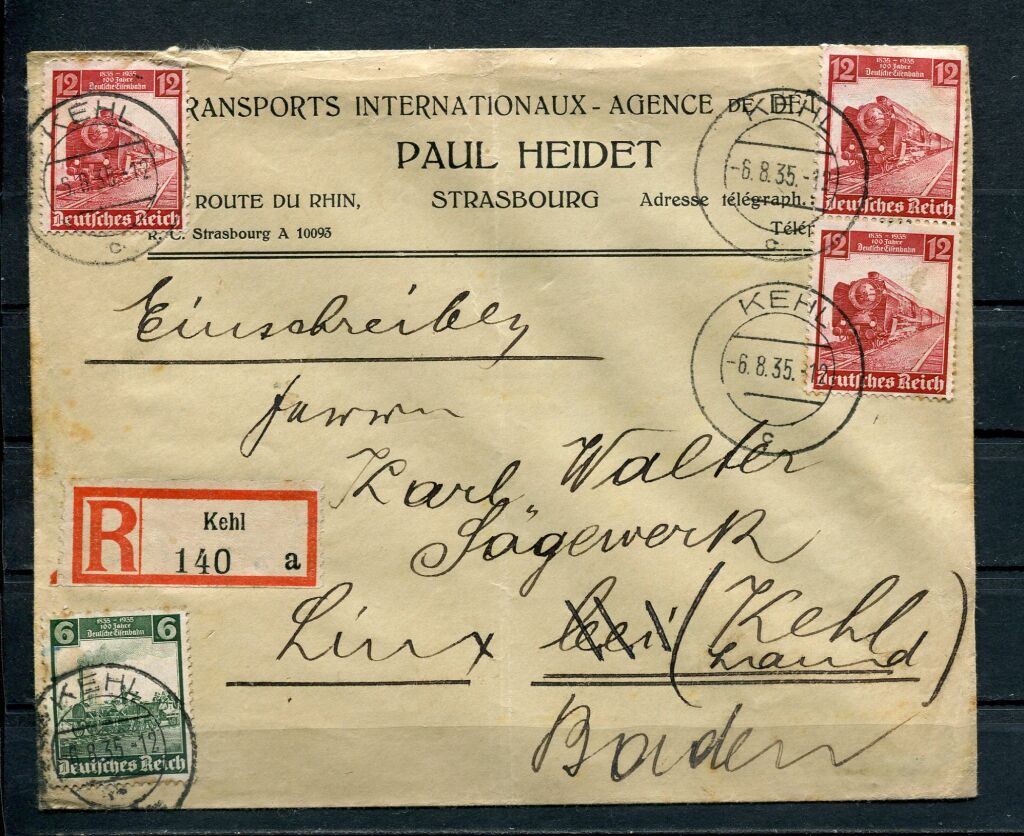 12 1835 - 1935 12
100 Jahre
Deutsche Eisenbahn
Deutsches Reich
KEHL
-6.8.35.-12
c
12 1835 - 1935 12
100 Jahre
Deutsche Eisenbahn
Deutsches Reich
KEHL
-6.8.35.-12
c
RANSPORTS INTERNATIONAUX - AGENCE DE DÉ
PAUL HEIDET
ROUTE DU RHIN, STRASBOURG Adresse télégraph.
R. C. Strasbourg A 10093 Télép
12 1835 - 1935 12
100 Jahre
Deutsche Eisenbahn
Deutsches Reich
KEHL
-6.8.35.-12
c
Einschreiben
Herrn
Karl Walter
Sägewerk
R Kehl
140 a
Linx bei (Kehl
Land)
Baden
6 1835 - 1935 6
100 Jahre
Deutsche Eisenbahn
Deutsches Reich
KEHL
-6.8.35.-12